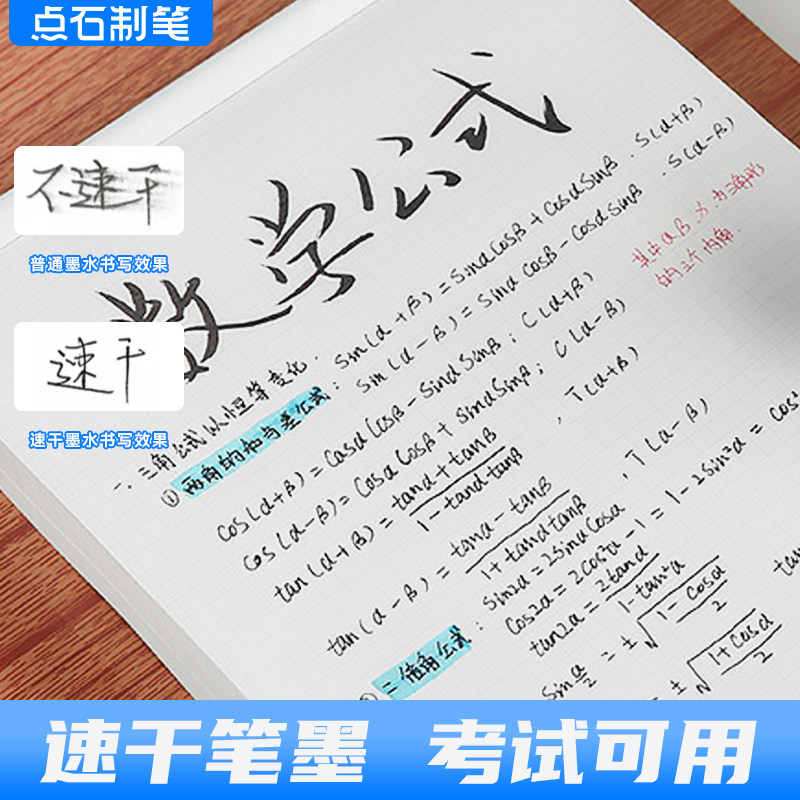 点石制笔
不速干
普通墨水书写效果
速干
速干墨水书写效果
数学公式
一. 三角公式以恒等变化.
① 两角的和与差公式: Sin(α+β)=SinαCosβ+CosαSinβ . S(α+β)
Sin(α-β)=Sinα Cosβ-CosαSinβ . S(α-β)
其中α.β.
的三个内角.
Cos(α+β)=CosαCosβ-SinαSinβ; C(α+β)
Cos(α-β)=CosαCosβ+SinαSinβ; C(α-β)
tan(α+β)=tanα+tanβ/1-tanαtanβ , T(α+β)
tan(α-β)=tanα-tanβ/1+tanαtanβ , T(α-β)
二倍角公式: Sin2α=2SinαCosα
Cos2α=2Cos²α-1=1-2Sin²α=Cos²
tan2α=2tanα/1-tan²α
Sinα/2=±√1-Cosα/2
±√1+Cosα/2
tan
速干笔墨 考试可用